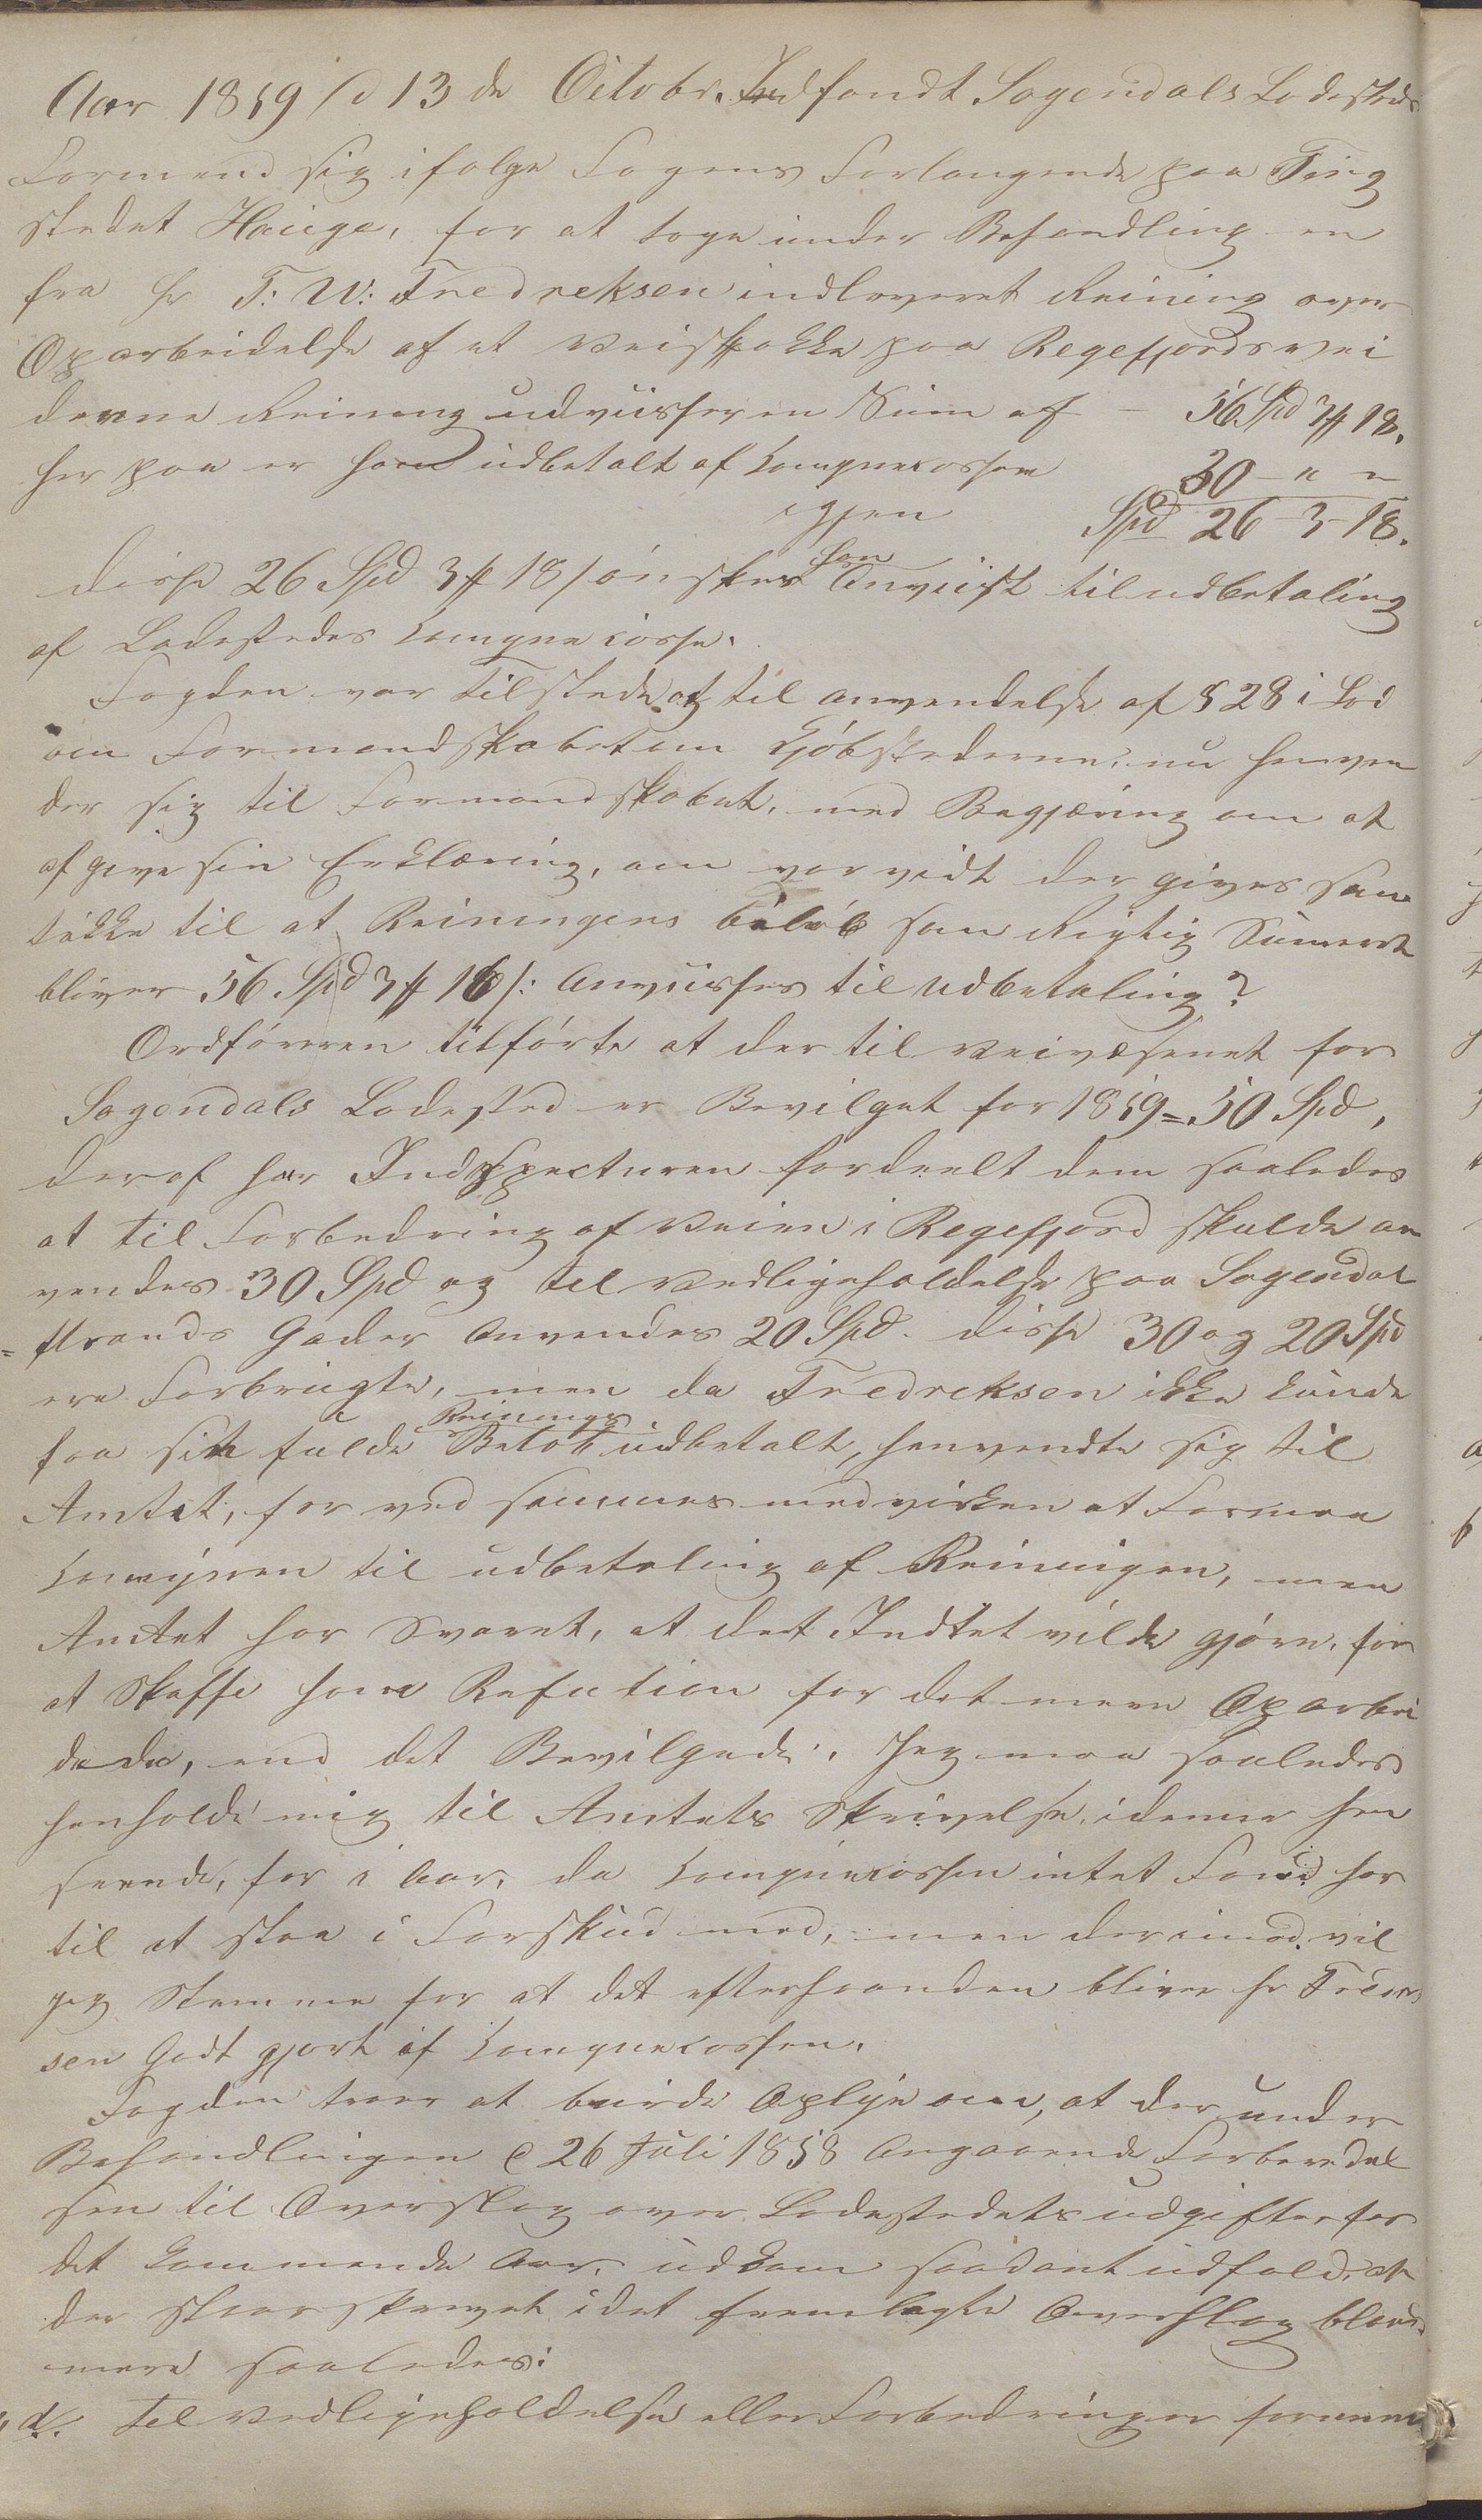 Aar 1859 d 13de Octobr. Indfandt Sogendals Ladesteds
Formænd sig ifølge Fogens Forlangende paa Ting
stedet Hauge, for at tage under Behandling en
fra Hr T: W: Fredreksen indleveret Reining over
Oparbeidelse af et Veistykke paa Regefjords vei
denne Reining udviisser en Sum af - 56 Spd 3 # 18.
her paa er ham udbetalt af Comynecassen 30 - " "
igjen Spd 26 - 3 - 18.
disse 26 Spd 3 # 18 s ønskes han Anviist til udbetaling
af Ladestedes Comyne casse.
Fogden var tilstede og til anvendelse af § 28 i Lov
om Formandskabet om Kjøbstederne, nu henven
der sig til Formandskabet, med Begjæring om at
afgive sin Erklæring, om vorvidt der gives sam
tøkke til at Reiningens beløb som Rigtig Sumeret
bliver 56 Spd 3 # 18 s: Anviisses til udbetaling?
Ordføreren tilførte at der til Veivæsenet for
Sogendals Ladested er Bevilget for 1859 = 50 Spd,
deraf har Indspecturen fordeelt dem saaledes
at til Forbedring af Veien i Regefjord skulde an
vendes 30 Spd og til Vedligeholdelse paa Sogendal
= strands Gader Anvendes 20 Spd. disse 30 og 20 Spd
ere Forbrugte, men da Fredreksen ikke kunde
faa sit fulde Reinings Beløb udbetalt, henvendte sig til
Amtet, for ved sammes medvirken at Formaa
Comynen til udbetaling af Reiningen, men
Amtet har Svaret, at det Indtet vilde gjøre, for
at Skaffe ham Refution for det mere Oparbei
dede, end det Bevilgede. Jeg maa saaledes
henholde mig til Amtets Skrivelse, i denne hen
seende, for i Aar, da Comynecassen intet Fond har
til at staa i Forskud med, men derimod vil
jeg Stemme for at det efterhaanden bliver Hr Fredrek
sen Godt gjort af Comynecassen.
Fogden troer at burde Oplyse om, at der under
Behandlingen d 26 Juli 1858 Angaaende Forberedel
sen til Overslag over Ladestedets udgifter for
det kommende Aar, udkom saadant udfald, at
der staar skrevet i det fremlagte Overslag bland
mere saaledes:
" d/. Til Vedligeholdelse eller Forbedringer